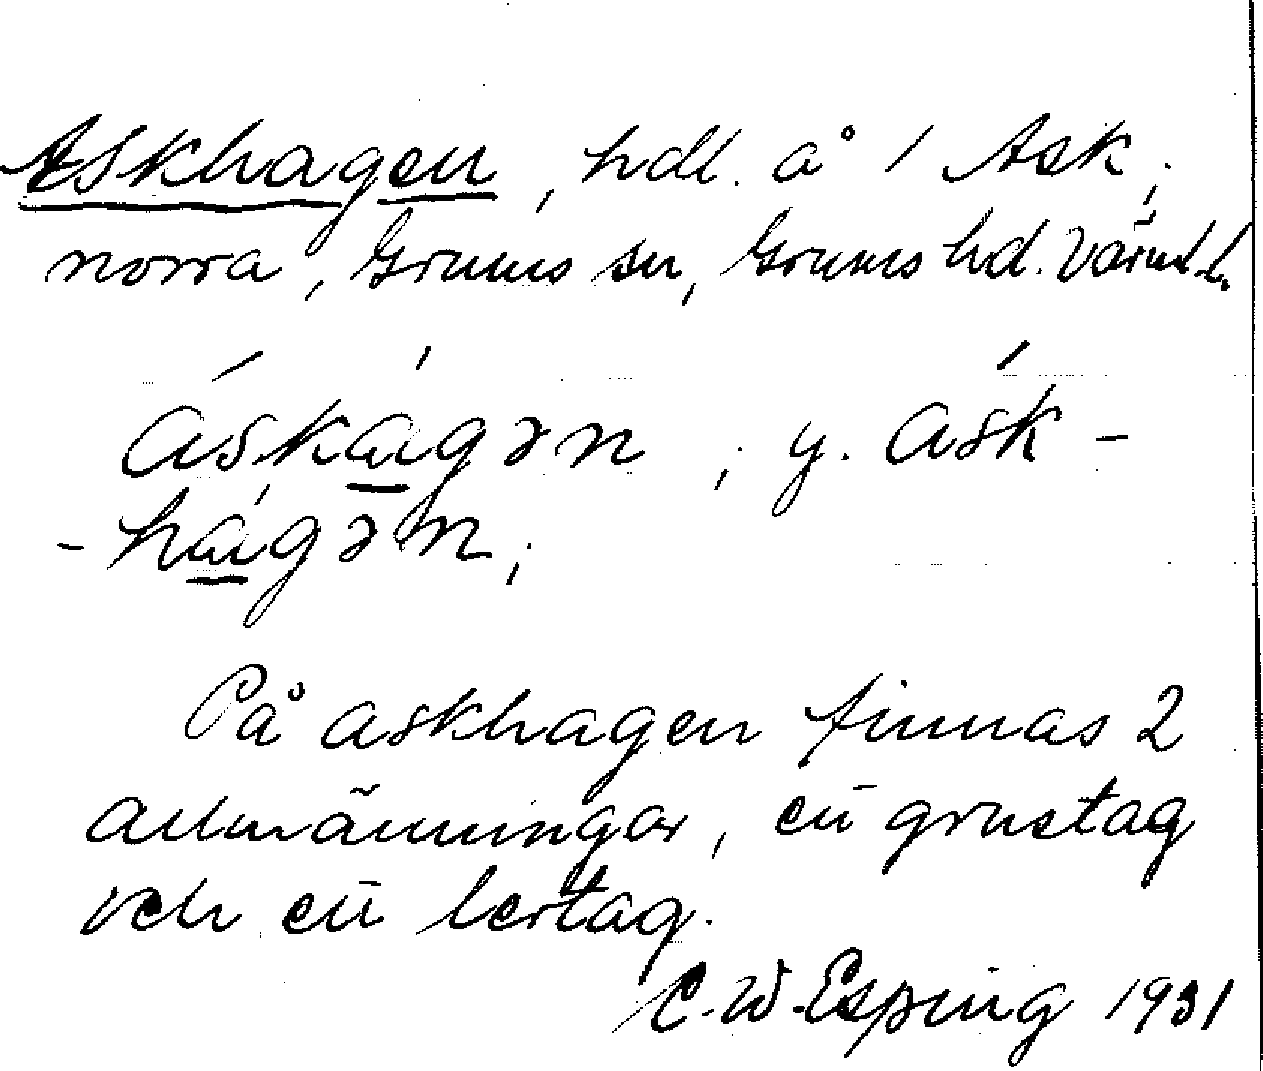 Askhagen, hdl. å 1 Ask,
norra, Grums sn, Grums hd. Värml.
áskágən, y. ask-
-hágən,
På askhagen finnas 2
allmänningar, ett grustag
och ett lertag.
C. W. Esping 1931